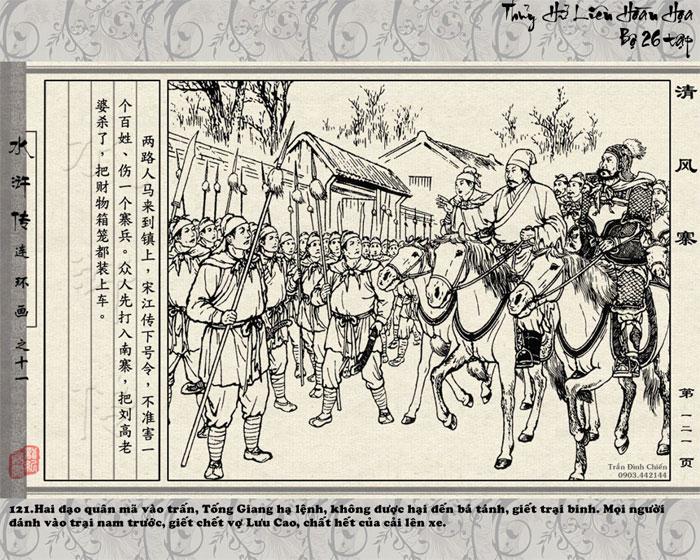 Thủy Hử Liên Hoàn Họa
Bộ 26 tập
清风寨
水浒传连环画之十一
两路人马来到镇上，宋江传下号令，不准害一
个百姓、伤一个寨兵。众人先打入南寨，把刘高老
婆杀了，把财物箱笼都装上车。
第一二一页
Trần Đình Chiến
0903.442144
121.Hai đạo quân mã vào trấn, Tống Giang hạ lệnh, không được hại đến bá tánh, giết trại binh. Mọi người
đánh vào trại nam trước, giết chết vợ Lưu Cao, chất hết của cải lên xe.